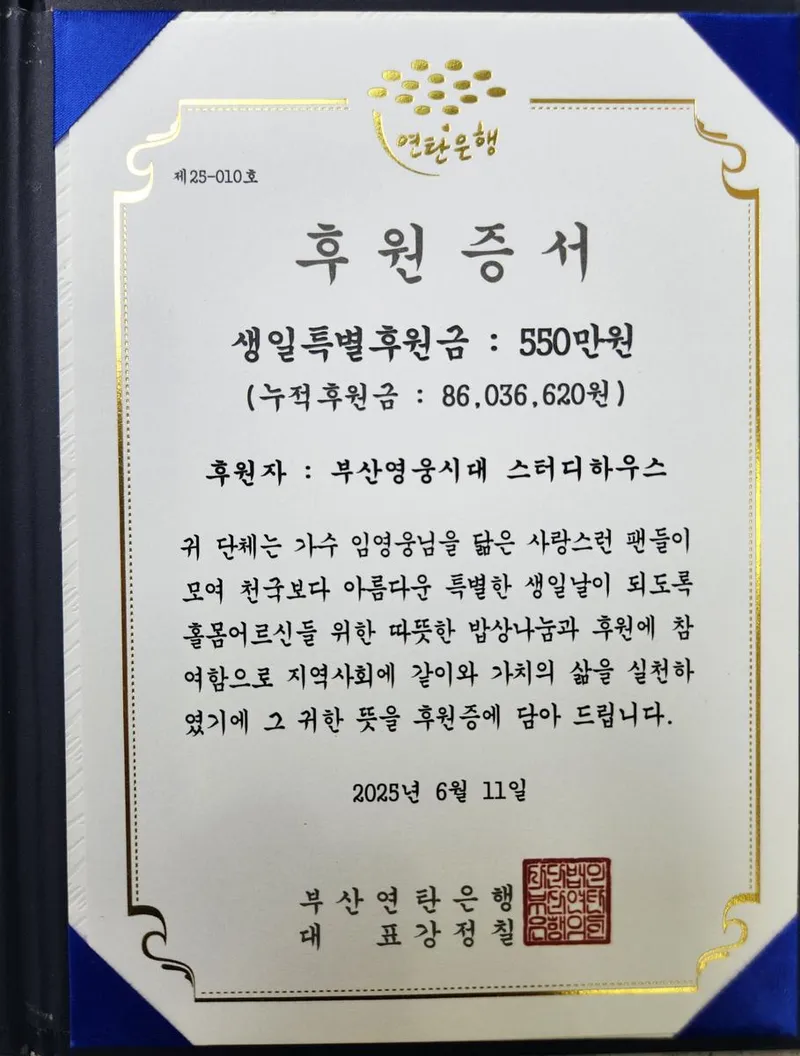 연탄은행
제25-010호
후원증서
생일특별후원금 : 550만원
(누적후원금 : 86,036,620원)
후원자 : 부산영웅시대 스터디하우스
귀 단체는 가수 임영웅님을 닮은 사랑스런 팬들이
모여 천국보다 아름다운 특별한 생일날이 되도록
홀몸어르신들 위한 따뜻한 밥상나눔과 후원에 참
여함으로 지역사회에 같이와 가치의 삶을 실천하
였기에 그 귀한 뜻을 후원증에 담아 드립니다.
2025년 6월 11일
부산연탄은행
대 표강정칠